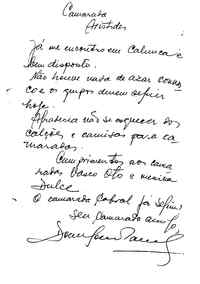 Camarada
Aristides
Já me encontro em Calunca e
bem disposto.
Não houve nada de azar
coe os grupos devem seguir
hoje.
Agradecia não se esquecer dos
calções e camisas para ca-
maradas.
Cumprimentos aos cama
radas Vasco, Oto e menina
Dulce
O camarada Cabral já seguiu
Seu camarada amigo